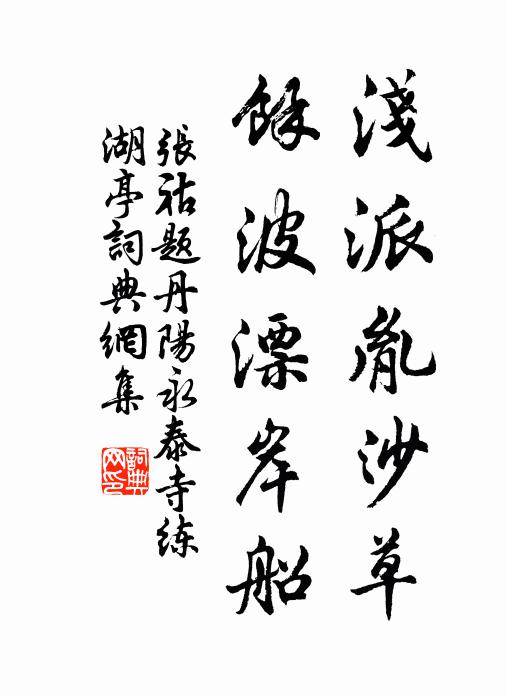 淺派胤沙草
餘波漂岸船
張祜題丹陽永泰寺練
湖亭詞典網集
詞典
网印